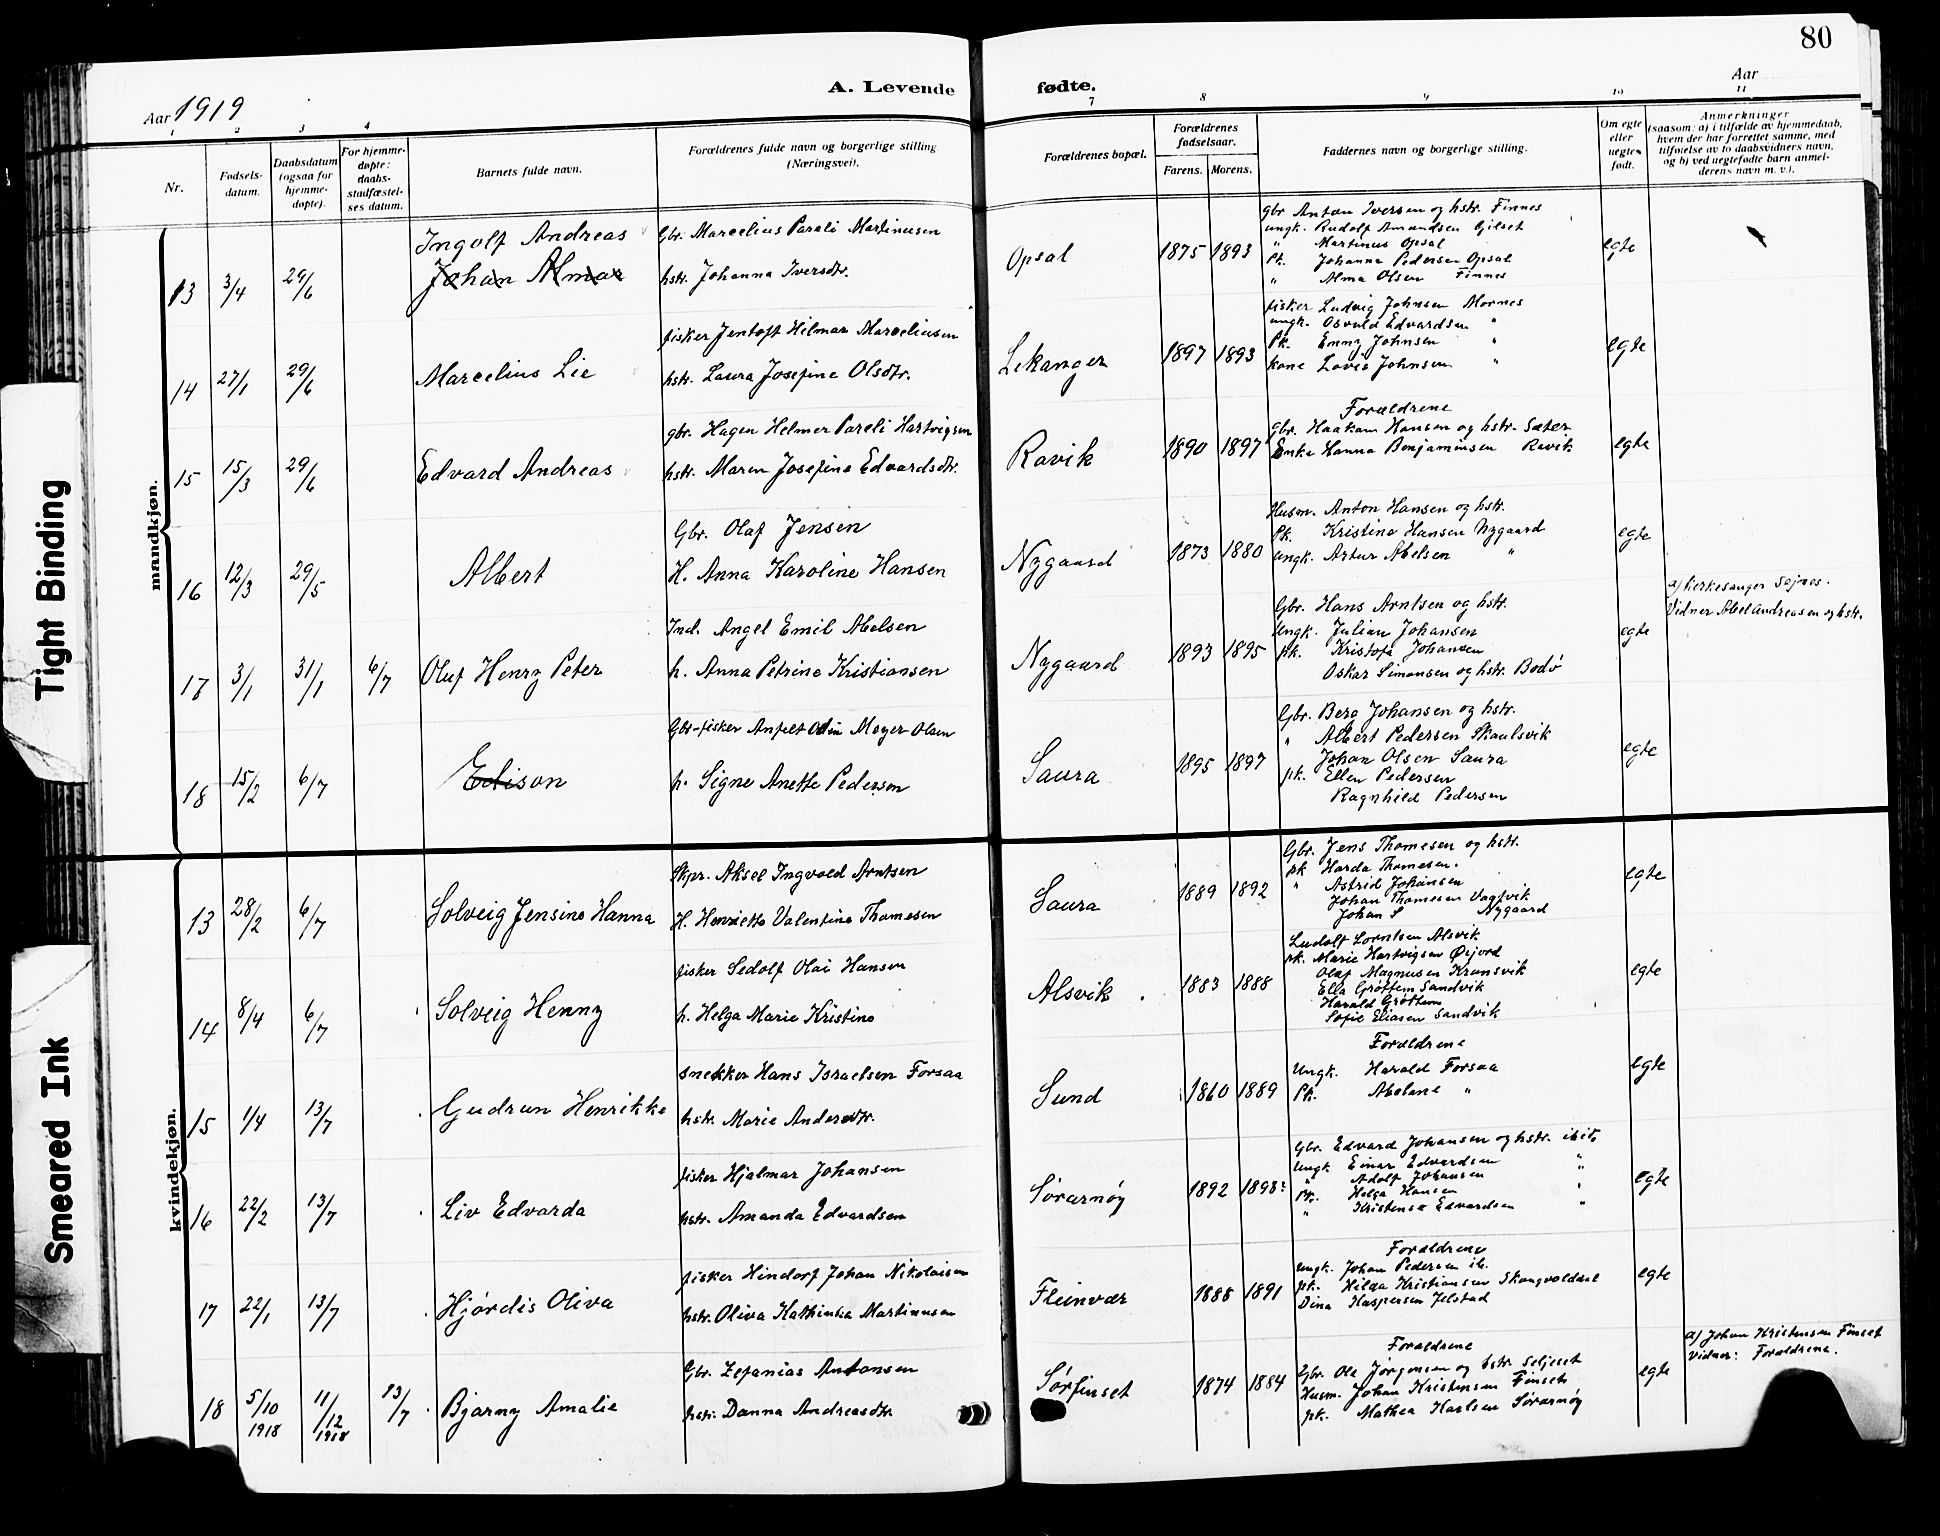 80
A. Levende
fødte.
Aar 1919
Aar
1 2 3 4
7 8 9 10 11
Nr.
Fødsels-
datum.
Daabsdatum
(ogsaa for
hjemme-
døpte).
For hjemme-
døpte:
daabs-
stadfæstel-
ses datum.
Barnets fulde navn.
Forældrenes fulde navn og borgerlige stilling
(Næringsvei).
Forældrenes bopæl.
Forældrenes
fødselsaar.
Farens. Morens.
Faddernes navn og borgerlige stilling.
Om egte
eller
uegte
født.
Anmerkninger
(saasom: a) i tilfælde av hjemmedaab,
hvem der har forrettet samme, med
tilføielse av to daabsvidners navn,
og b) ved uegtefødte barn anmel-
derens navn m. v.).
mandkjøn.
13 3/4 29/6
Ingolf Andreas
Johan Almar
Gbr. Marcelius Pareli Martinusen
hstr. Johanna Iversdtr.
Opsal 1875 1893
gbr Anton Iversen og hstr. Finnes
ungk. Rudolf Amundsen Gilset
" Martinus Opsal
Pk. Johanna Pedersen Opsal
" Alma Olsen Finnes
egte
14 27/1 29/6
Marcelius Lie
fisker Jentoft Hilmar Marceliusen
hstr. Laura Josefine Olsdtr.
Lekanger 1897 1893
fisker Ludvig Johnsen Mornes
ungk. Osvald Edvardsen "
Pk. Enny Johnsen "
kone Lovis Johnsen "
egte
15 15/3 29/6
Edvard Andreas
gbr. Hagen Helmer Pareli Hartvigsen
hstr. Maren Josefine Edvardsdtr.
Ravik 1890 1897
Forældrene
Gbr. Haakon Hansen og hstr. Sæter
Enke Hanna Benjaminsen Ravik
egte
16 12/3 29/5
Albert
Gbr. Olaf Jensen
H. Anna Karoline Hansen
Nygaard 1873 1880
Husm. Anton Hansen og hstr.
Pk. Kristine Hansen Nygaard
ungk. Artur Abelsen "
egte
17 3/1 31/1 6/7
Oluf Henry Peter
Ind. Angel Emil Abelsen
h. Anna Petrine Kristiansen
Nygaard 1893 1895
Gbr. Hans Arntsen og hstr.
Ungk. Julian Johansen
pk. Kristofa Johansen
Oskar Simonsen og hstr. Bodø
egte
a) kirkesanger Sejnes.
Vidner Abel Andreasen og hstr.
18 15/2 6/7
Edison
Gbr-fisker Anfelt Odin Meyer Olsen
h. Signe Anette Pedersen
Saura 1895 1897
Gbr. Berg Johansen og hstr.
" Albert Pedersen Skaulsvik
Johan Olsen Saura
pk. Ellen Pedersen
Ragnhild Pedersen
egte
kvindekjøn.
13 28/2 6/7
Solveig Jensine Hanna
Skpr. Aksel Ingvald Arntsen
H. Henriette Valentine Thomesen
Saura 1889 1892
Gbr. Jens Thomesen og hstr.
pk Harda Thomesen.
" Astrid Johansen
Johan Thomesen Vagtvik
Johan S Nygaard
egte
14 8/4 6/7
Solveig Henny
fisker Sedolf Olai Hansen
h. Helga Marie Kristine
Alsvik 1883 1888
Ludolf Lorntsen Alsvik
pk. Marie Hartvigsen Øijord
Olaf Magnusen Kransvik
Ella Grøttem Sandvik
Harald Grøttem
Sofie Eliasen Sandvik
egte
15 1/4 13/7
Gudrun Henrikke
snekker Hans Israelsen Forsaa
hstr. Marie Andersdtr.
Sund 1860 1889
Forældrene
Ungk. Harald Forsaa
Pk. Abelone "
egte
16 22/2 13/7
Liv Edvarda
fisker Hjalmar Johansen
hstr. Amanda Edvardsen
Sørarnøy 1892 1898
Gbr. Edvard Johansen og hstr. ibid.
Ungk Einar Edvardsen "
" Adolf Johansen
Pk. Helga Hansen "
" Kristense Edvardsen "
egte
17 22/1 13/7
Hjørdis Oliva
fisker Hindorf Johan Nikolaisen
hstr. Oliva Kathinka Martinusen
Fleinvær 1888 1891
Forældrene
ungk. Johan Pedersen ib.
pk. Hilda Kristiansen Skaugvolddal
Dina Kaspersen Jelstad
egte
18 5/10 1918 11/12 1918 13/7
Bjarny Amalie
Gbr. Zefanias Antonsen
hstr. Danna Andreasdtr
Sørfinset 1874 1884
Forældrene
Gbr. Ole Jørgensen og hstr. Seljeset
Husm. Johan Kristensen Finset
pk. Mathea Karlsen Sørarnøy
egte
a) Johan Kristensen Finset
Vidner: Forældrene.
Tight Binding
Smeared Ink